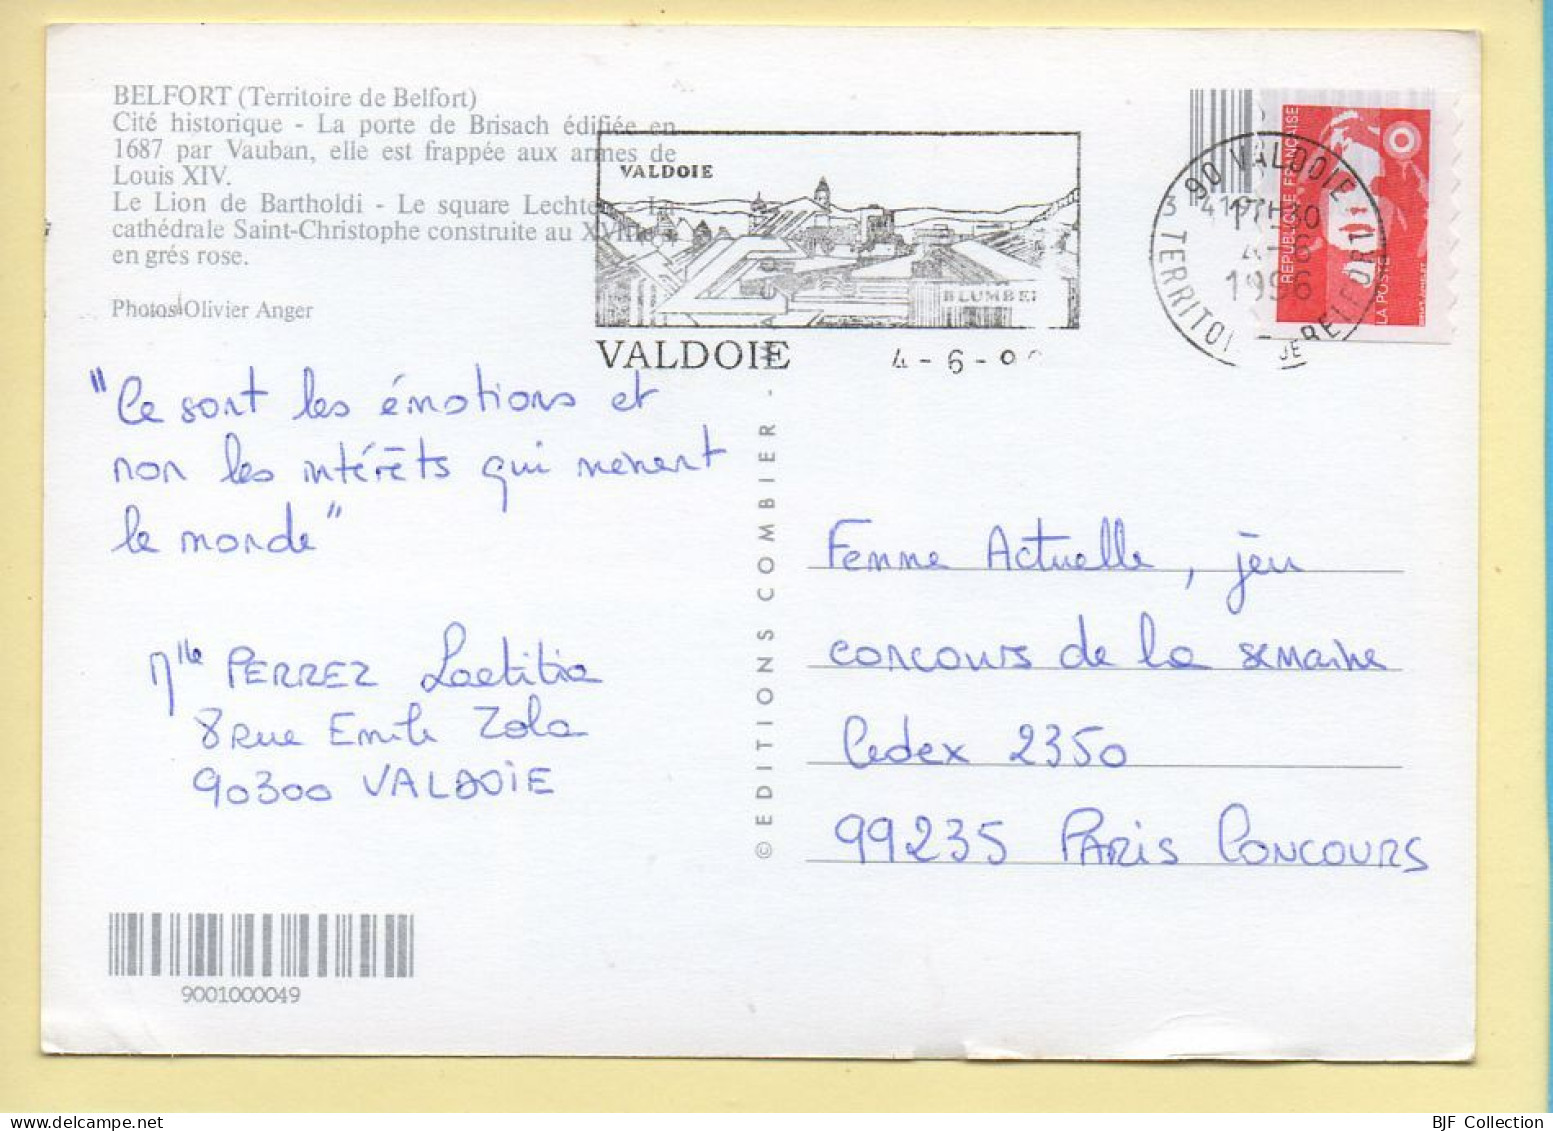 BELFORT (Territoire de Belfort)
Cité historique - La porte de Brisach édifiée en
1687 par Vauban, elle est frappée aux armes de
Louis XIV.
Le Lion de Bartholdi - Le square Lechten - La
cathédrale Saint-Christophe construite au XVIIIe s.
en grés rose.
Photos Olivier Anger
VALDOIE
BLUMBE
VALDOIE 4-6-9
90 VALDOIE
17H30
4-6
1996
TERRITOI DE BELFORT
REPUBLIQUE FRANÇAISE
LA POSTE
"Ce sont les émotions et
non les intérêts qui menent
le monde"
Mlle PERREZ Laetitia
8 Rue Emile Zola
90300 VALDOIE
© EDITIONS COMBIER -
Femme Actuelle, jeu
concours de la semaine
Cedex 2350
99235 PARIS CONCOURS
9001000049
BJF Collection